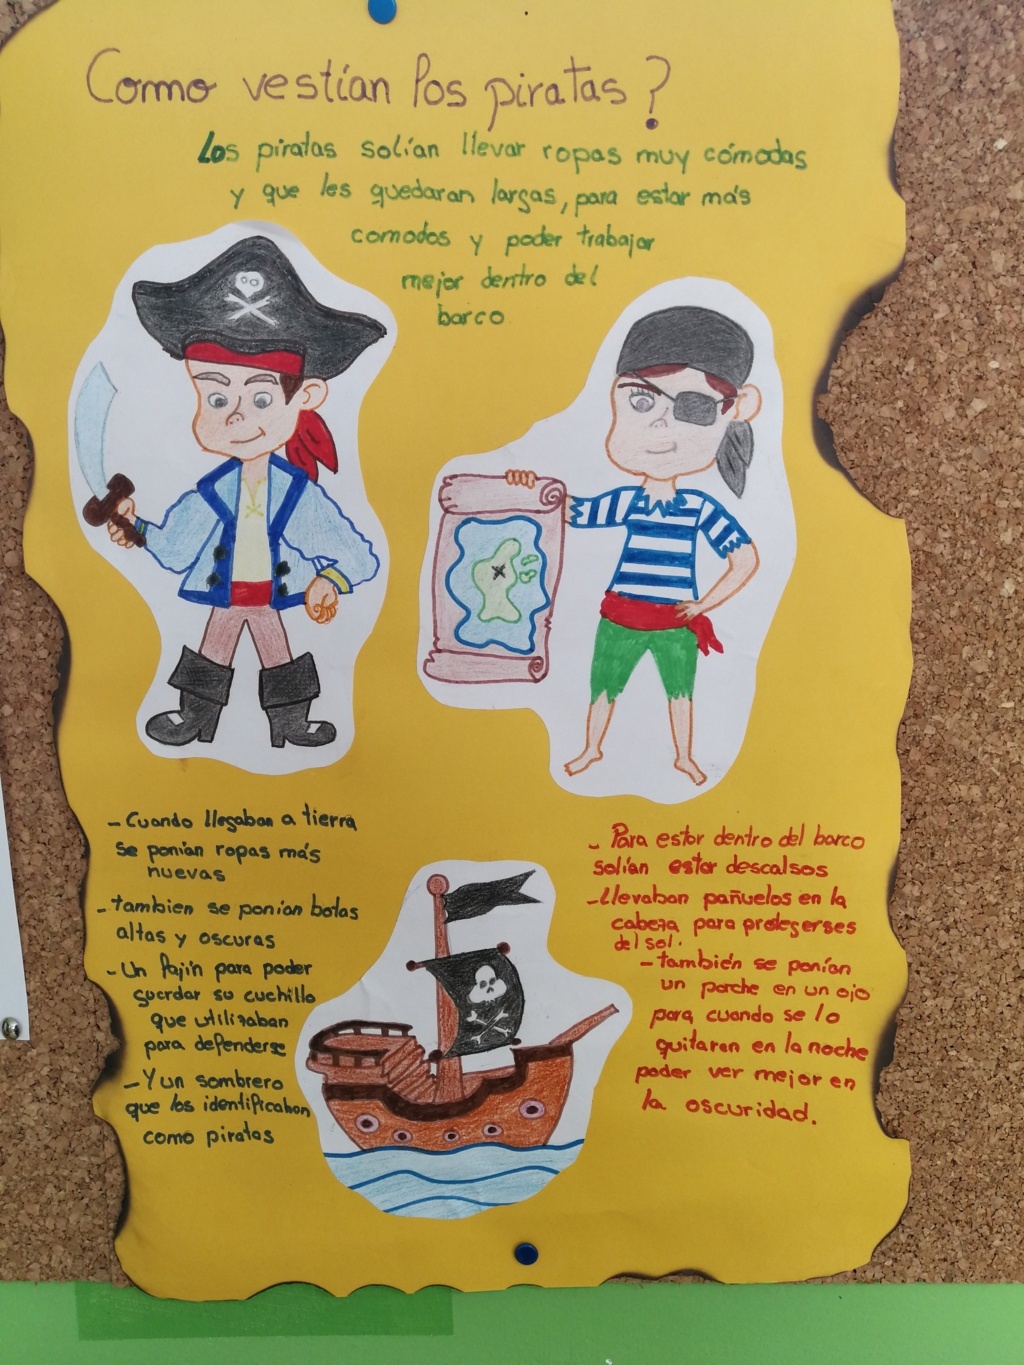 Como vestían los piratas?
Los piratas solían llevar ropas muy cómodas
y que les quedaran largas, para estar más
comodos y poder trabajar
mejor dentro del
barco
- Cuando llegaban a tierra
se ponían ropas más
nuevas
- tambien se ponían botas
altas y oscuras
- Un fajín para poder
guardar su cuchillo
que utilizaban
para defenderse
- Y un sombrero
que los identificaban
como piratas
- Para estar dentro del barco
solían estar descalsos
- Llevaban pañuelos en la
cabeza para protegerses
del sol.
- también se ponían
un parche en un ojo
para cuando se lo
quitaran en la noche
poder ver mejor en
la oscuridad.